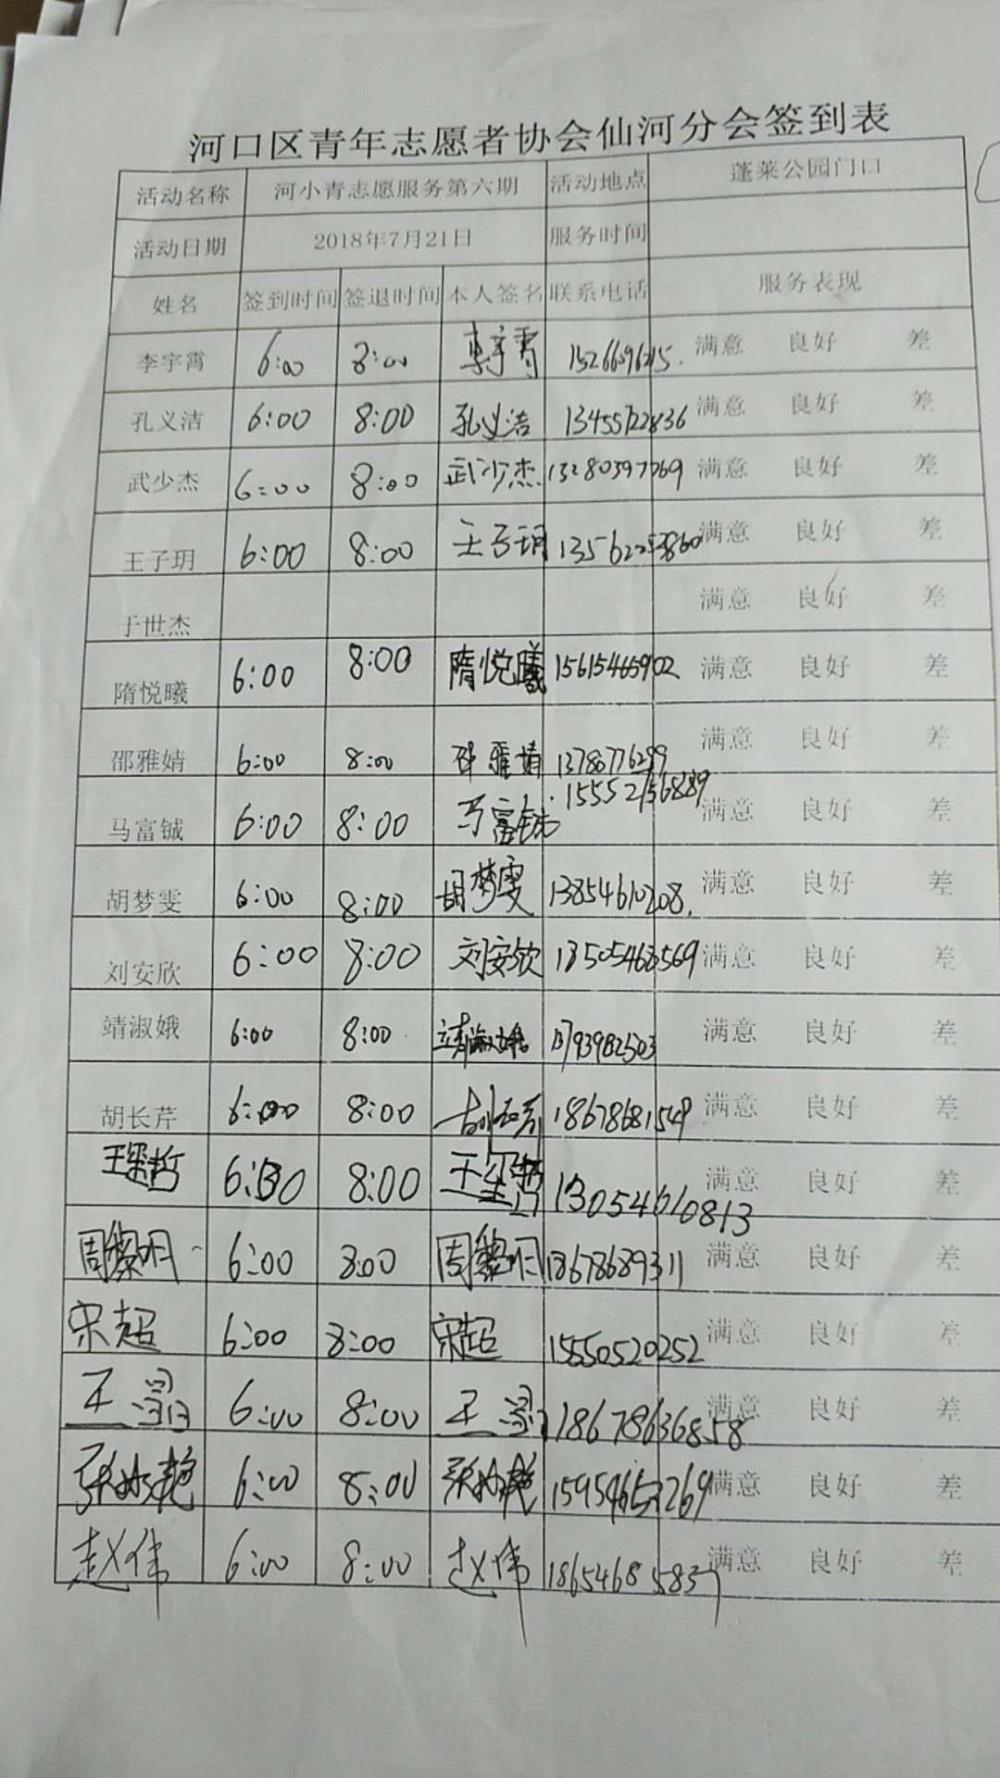 河口区青年志愿者协会仙河分会签到表
活动名称 河小青志愿服务第六期 活动地点 蓬莱公园门口
活动日期 2018年7月21日 服务时间
姓名 签到时间 签退时间 本人签名 联系电话 服务表现
李宇霄 6:00 8:00 李宇霄 满意 良好 差
孔义洁 6:00 8:00 孔义洁 13455722836 满意 良好 差
武少杰 6:00 8:00 武少杰 13280397769 满意 良好 差
王子玥 6:00 8:00 王子玥 满意 良好 差
于世杰 满意 良好 差
隋悦曦 6:00 8:00 隋悦曦 15615465902 满意 良好 差
邵雅婧 6:00 8:00 邵雅婧 满意 良好 差
马富铖 6:00 8:00 马富铖 15552756889 满意 良好 差
胡梦雯 6:00 8:00 胡梦雯 13854610208 满意 良好 差
刘安欣 6:00 8:00 刘安欣 满意 良好 差
靖淑娥 6:00 8:00 靖淑娥 满意 良好 差
胡长芹 6:00 8:00 胡长芹 18678681549 满意 良好 差
8:00 13054610813 满意 良好 差
周黎明 6:00 8:00 周黎明 18678689311 满意 良好 差
宋超 6:00 8:00 宋超 15550520252 满意 良好 差
王 6:00 8:00 王 18678636858 满意 良好 差
6:00 8:00 满意 良好 差
赵伟 6:00 8:00 赵伟 18654685837 满意 良好 差